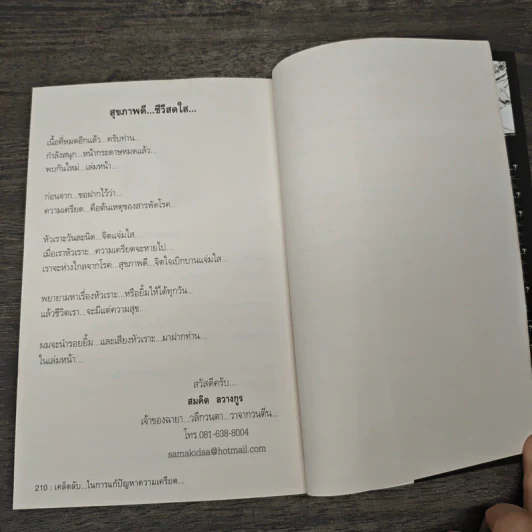 สุขภาพดี...ชีวีสดใส...
เนื้อที่หมดอีกแล้ว...ครับท่าน...
กำลังสนุก...หน้ากระดาษหมดแล้ว...
พบกันใหม่...เล่มหน้า...
ก่อนจาก...ขอฝากไว้ว่า...
ความเครียด...คือต้นเหตุของสารพัดโรค...
หัวเราะวันละนิด...จิตแจ่มใส...
เมื่อเราหัวเราะ...ความเครียดจะหายไป...
เราจะห่างไกลจากโรค...สุขภาพดี...จิตใจเบิกบานแจ่มใส...
พยายามหาเรื่องหัวเราะ...หรือยิ้มให้ได้ทุกวัน...
แล้วชีวิตเรา...จะมีแต่ความสุข...
ผมจะนำรอยยิ้ม...และเสียงหัวเราะ...มาฝากท่าน...
ในเล่มหน้า...
สวัสดีครับ...
สมคิด ลวางกูร
เจ้าของฉายา...วลีกวนตา...วาจากวนตีน...
โทร.081-638-8004
samakidaa@hotmail.com
210 : เคล็ดลับ...ในการแก้ปัญหาความเครียด...